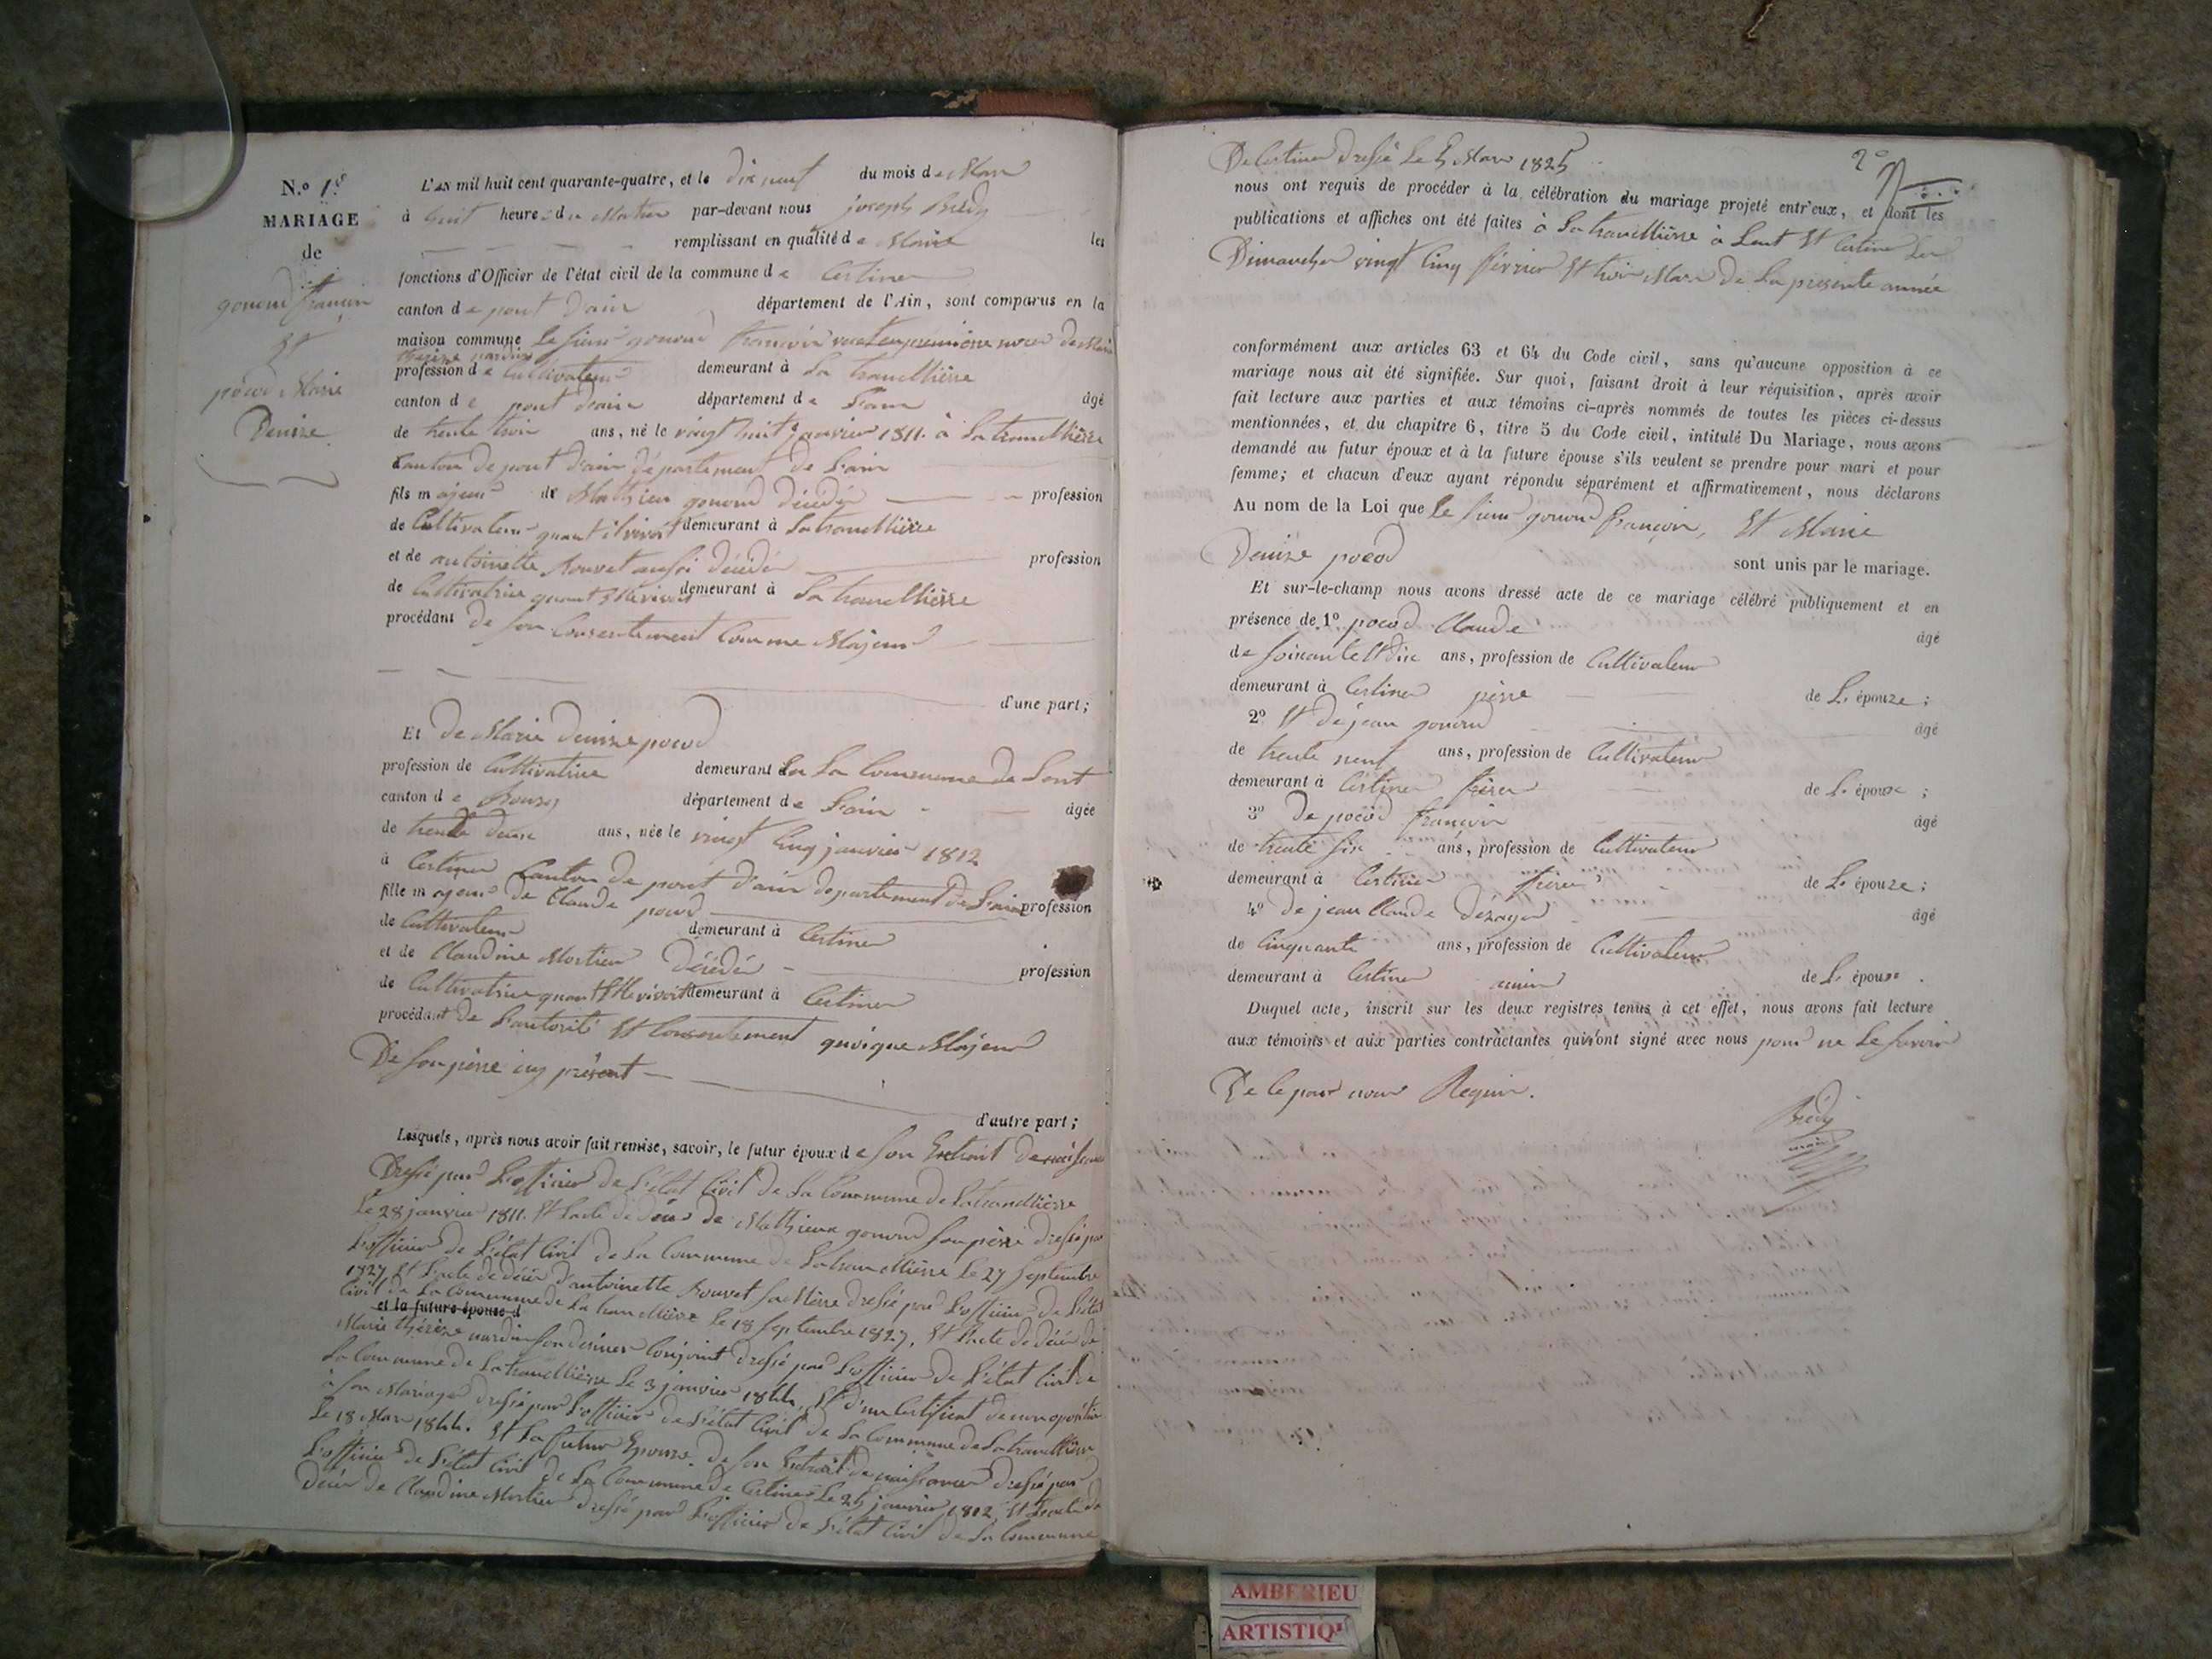 N.º 1er
MARIAGE
de
gonond françois
Et
pocod Marie
Denize
L'AN mil huit cent quarante-quatre, et le dix neuf du mois de Mars
à huit heures du Matin par-devant nous joseph Brédy
remplissant en qualité de Maire les
fonctions d'Officier de l'état civil de la commune de Certines
canton de pont d'ain département de l'Ain, sont comparus en la
maison commune le sieur gonond françois veuf en premiere noces de Marie
therèze nardin
profession de Cultivateur demeurant à La tranclliere
canton de pont d'ain département de L'ain âgé
de trente trois ans, né le vingt huit janvier 1811. à La tranclliere
Canton de pont d'ain département de L'ain
fils majeur de Mathieu gonond décédé profession
de Cultivateur quant il vivoit demeurant à La tranclliere
et de antoinette Bouvet aussi décédée profession
de Cultivatrice quant Elle vivoit demeurant à La tranclliere
procédant de son Consentement Comme Majeur
d'une part;
Et De Marie Denize pocod
profession de Cultivatrice demeurant en La Commune de Lent
canton de Bourg département de L'ain âgée
de trente deux ans, née le vingt Cinq janvier 1812
à Certines Canton de pont d'ain departement de L'ain
fille majeur de Claude pocod profession
de Cultivateur demeurant à Certines
et de Claudine Mortier Décédée profession
de Cultivatrice quant Elle vivoit demeurant à Certines
procédant de L'autorité Et Consentement quoique Majeur
De son père icy présent
d'autre part;
Lesquels, après nous avoir fait remise, savoir, le futur époux de son Extrait de naissance
Dressé par L'officier de L'état Civil de La Commune de Latranclliere
Le 28 janvier 1811. Et L'acte de décés de Mathieux gonond son père dressé par
L'officier de L'état Civil de La Commune de Latranclliere Le 27 Septembre
1827 Et L'acte de décès d'antoinette Bouvet sa Mère dressé par L'officier de L'état
Civil de La Commune de La tranclliere Le 18 Septembre 1827, Et L'acte de décés de
et la future épouse d
Marie thérèze nardin son dernier Conjoint dressé par L'officier de L'état Civil de
La Commune de Latranclliere Le 3 janvier 1844, Et d'un Certificat de non oposition
à son Mariage dressé par L'officier de L'état Civil de La Commune de Latranclliere
Le 18 Mars 1844. Et La future Epouze. de son Extrait de naissance dressé par
L'officier de L'état Civil de La Commune de Certines Le 25 janvier 1812, Et L'acte de
Décés de Claudine Mortier dressé par L'officier de L'état Civil de La Commune
2º
De Certines dressé Le 5 Mars 1825
nous ont requis de procéder à la célébration du mariage projeté entr'eux, et dont les
publications et affiches ont été faites à La tranclliere à Lent Et Certines Les
Dimanches vingt Cinq février Et trois Mars De La présente année
conformément aux articles 63 et 64 du Code civil, sans qu'aucune opposition à ce
mariage nous ait été signifiée. Sur quoi, faisant droit à leur réquisition, après avoir
fait lecture aux parties et aux témoins ci-après nommés de toutes les pièces ci-dessus
mentionnées, et du chapitre 6, titre 5 du Code civil, intitulé Du Mariage, nous avons
demandé au futur époux et à la future épouse s'ils veulent se prendre pour mari et pour
femme; et chacun d'eux ayant répondu séparément et affirmativement, nous déclarons
Au nom de la Loi que Le sieur gonond françois, Et Marie
Denize pocod sont unis par le mariage.
Et sur-le-champ nous avons dressé acte de ce mariage célébré publiquement et en
présence de 1º pocod Claude âgé
de soixante Et dix ans, profession de Cultivateur
demeurant à Certines père de L'épouze;
2º Et de jean gonond âgé
de trente neuf ans, profession de Cultivateur
demeurant à Certines frère de L'époux;
3º De pocod françois âgé
de trente six ans, profession de Cultivateur
demeurant à Certines frère de L'épouze;
4º De jean Claude dézayes âgé
de Cinquante ans, profession de Cultivateur
demeurant à Certines amis de L'époux.
Duquel acte, inscrit sur les deux registres tenus à cet effet, nous avons fait lecture
aux témoins et aux parties contractantes qui n'ont signé avec nous pour ne Le savoir
De Ce par nous Requis.
Brédy
maire
AMBERIEU
ARTISTIQ